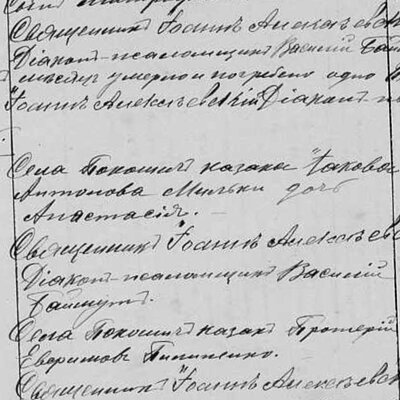 Священникъ Іоаннъ Алексѣевскій
Діаконъ-псаломщикъ Василій
умерло и погребено одно
Іоаннъ Алексѣевскій Діаконъ-
Села Покошичъ казака Іакова
Антонова Мильки дочь
Анастасія.
Священникъ Іоаннъ Алексѣевс
Діаконъ-псаломщикъ Василій
Села Покошичъ казакъ Протерій
Евфимовъ Пилипенко.
Священникъ Іоаннъ Алексѣевск